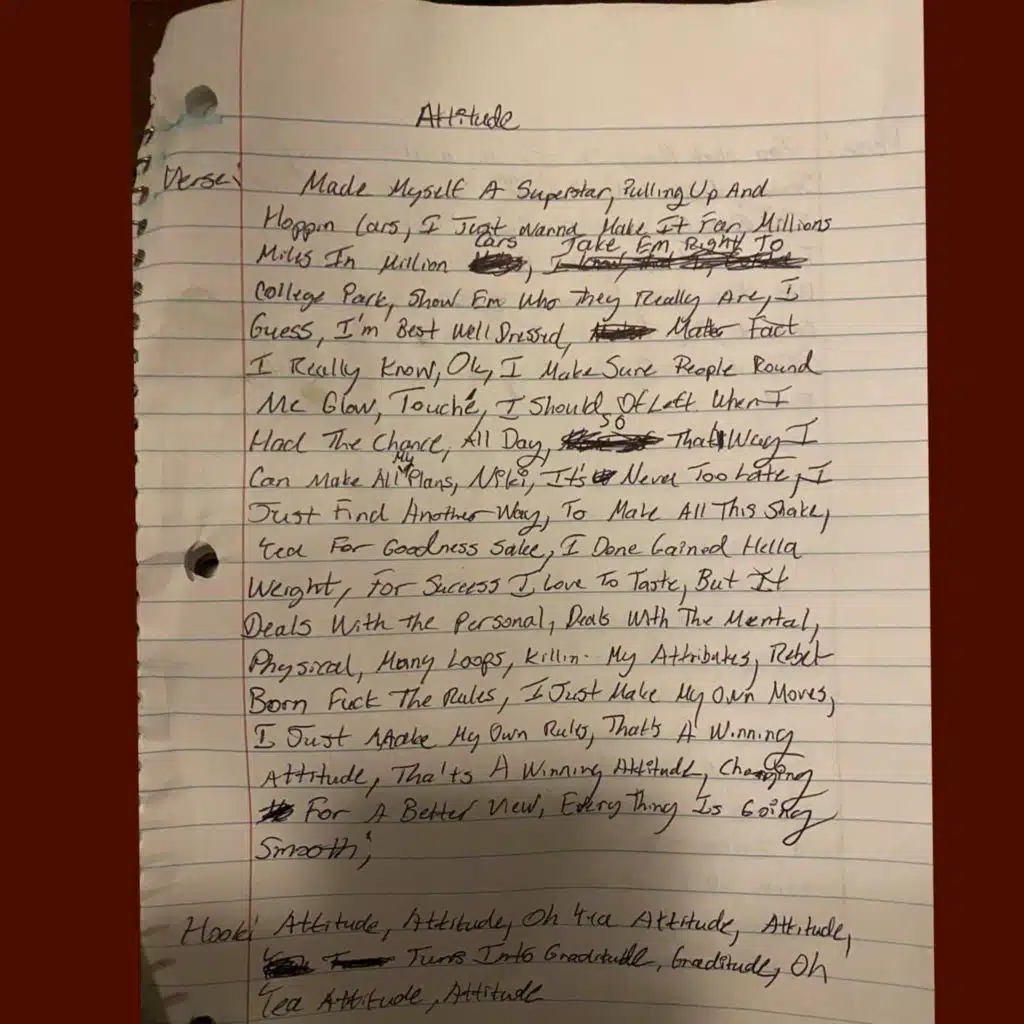 Attitude
Verse: Made Myself A Superstar, Pulling Up And
Hoppin Cars, I Just Wanna Make It Far, Millions
Cars Take Em Right To
Miles In Million ,
College Park, Show Em Who They Really Are, I
Guess, I'm Best Well Dressed, Matter Fact
I Really Know, Ok, I Make Sure People Round
Me Glow, Touché, I Should Of Left When I
Had The Chance, All Day, So That Way I
Can Make All My Plans, Niki, It's Never Too Late, I
Just Find Another Way, To Make All This Shake,
Yea For Goodness Sake, I Done Gained Hella
Weight, For Success I Love To Taste, But It
Deals With The Personal, Deals With The Mental,
Physical, Many Loops, Killin My Attributes, Rebel
Born Fuck The Rules, I Just Make My Own Moves,
I Just Make My Own Rules, That's A Winning
Attitude, Tha'ts A Winning Attitude, Changing
For A Better View, Every Thing Is Going
Smooth,
Hook: Attitude, Attitude, Oh Yea Attitude, Attitude,
Turns Into Graditude, Graditude, Oh
Yea Attitude, Attitude